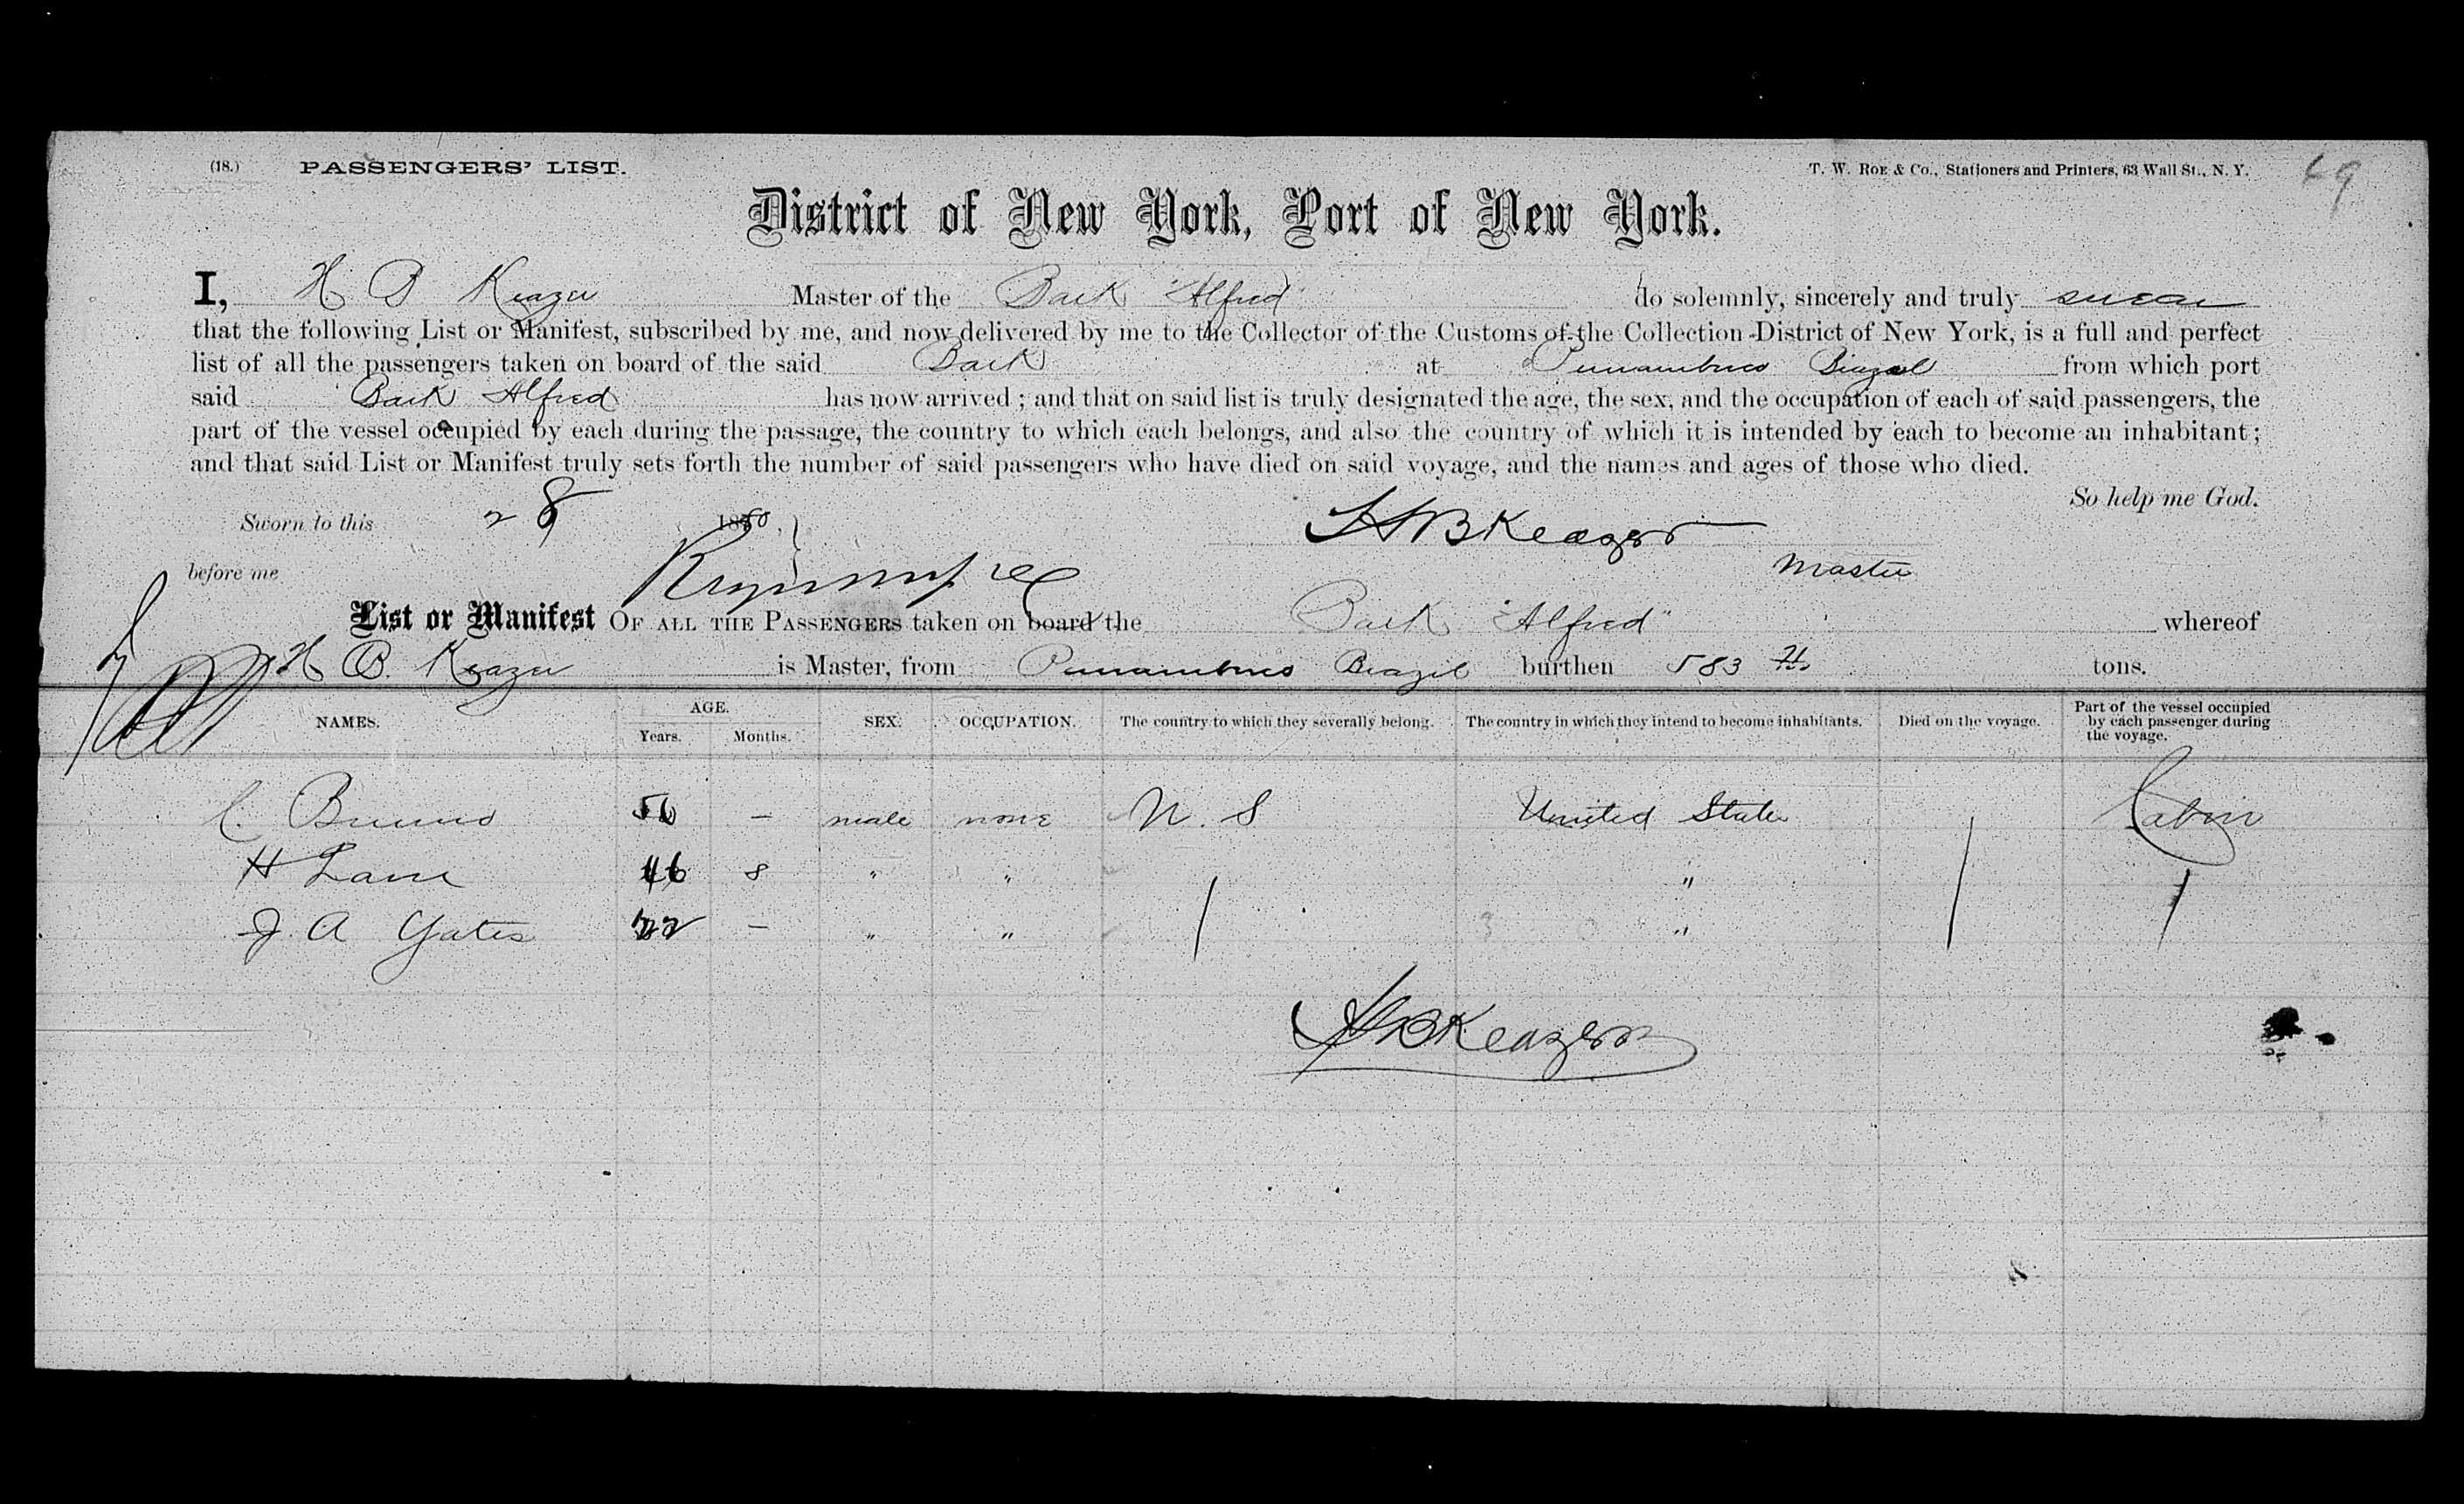 (18.) PASSENGERS' LIST. T. W. ROE & CO., Stationers and Printers, 63 Wall St., N. Y. 69
District of New York, Port of New York.
I, H B Keazer Master of the Bark "Alfred" do solemnly, sincerely and truly swear
that the following List or Manifest, subscribed by me, and now delivered by me to the Collector of the Customs of the Collection District of New York, is a full and perfect
list of all the passengers taken on board of the said Bark at Pernambuco Brazil from which port
said Bark Alfred has now arrived ; and that on said list is truly designated the age, the sex, and the occupation of each of said passengers, the
part of the vessel occupied by each during the passage, the country to which each belongs, and also the country of which it is intended by each to become an inhabitant ;
and that said List or Manifest truly sets forth the number of said passengers who have died on said voyage, and the names and ages of those who died.
So help me God.
Sworn to this 28 1880. HB Keazer
before me Master
List or Manifest OF ALL THE PASSENGERS taken on board the Bark "Alfred" whereof
H B. Keazer is Master, from Pernambuco Brazil burthen 583 tons.
NAMES. AGE. Years. Months. SEX. OCCUPATION. The country to which they severally belong. The country in which they intend to become inhabitants. Died on the voyage. Part of the vessel occupied by each passenger during the voyage.
C. 56 — male none U. S United States Cabin
H Lane 46 8 " " "
J. A Yates 22 — " " "
HB Keazer